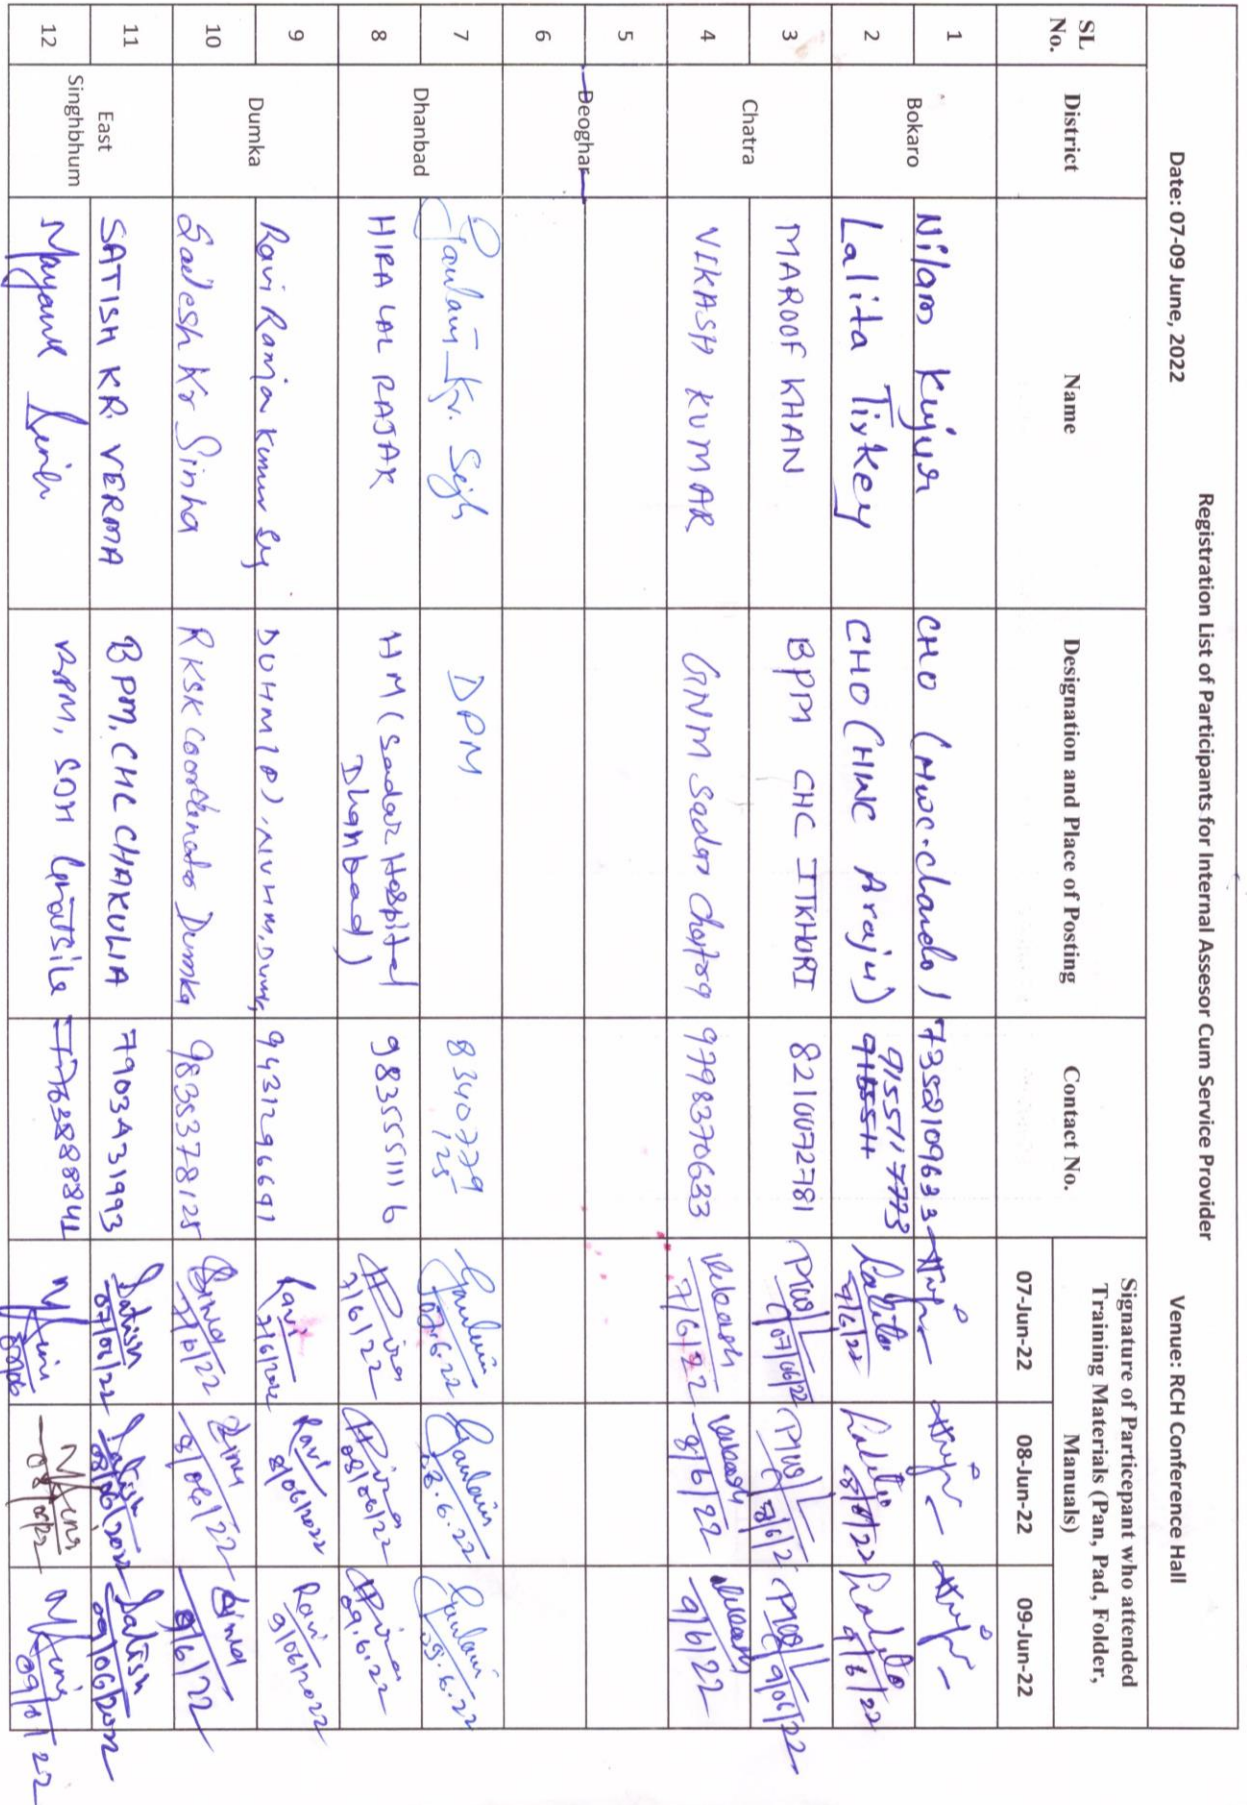 Registration List of Participants for Internal Assesor Cum Service Provider
Date: 07-09 June, 2022
Venue: RCH Conference Hall
SL No.
District
Name
Designation and Place of Posting
Contact No.
Signature of Particepant who attended
Training Materials (Pan, Pad, Folder,
Manuals)
07-Jun-22 08-Jun-22 09-Jun-22
1 Bokaro Nilam Kujur CHO (HWC-
2 Lalita Tirkey CHO (HWC Araju) 9155117773 Lalita 7/6/22 Lalita Lalita 9/6/22
3 Chatra MAROOF KHAN BPM CHC ITKHORI 8210072781 07/06/22 9/06/22
4 VIKASH KUMAR GNM Sadar Chatra 9798370633 Vikash 7/6/22 Vikash 8/6/22 Vikash 9/6/22
5 Deoghar
6
7 Dhanbad Gautam Kr. DPM 8340779125 Gautam Gautam 08.6.22 Gautam 09.6.22
8 HIRA LAL RAJAK HM (Sadar Hospital
Dhanbad) 9835551116 7/6/22 08/06/22 09.6.22
9 Dumka Ravi Ranjan Kumar 9431296691 Ravi Ravi 8/06/2022 Ravi 9/06/2022
10 Kr Sinha RKSK Coordinator Dumka 9835378125 Sinha 7/6/22 Sinha 8/06/22 Sinha 9/6/22
11 East
Singhbhum SATISH KR. VERMA BPM, CHC CHAKULIA 7903431993 Satish 07/06/22 Satish 08/06/2022 Satish 09/06/2022
12 Mayank BPM, SDH